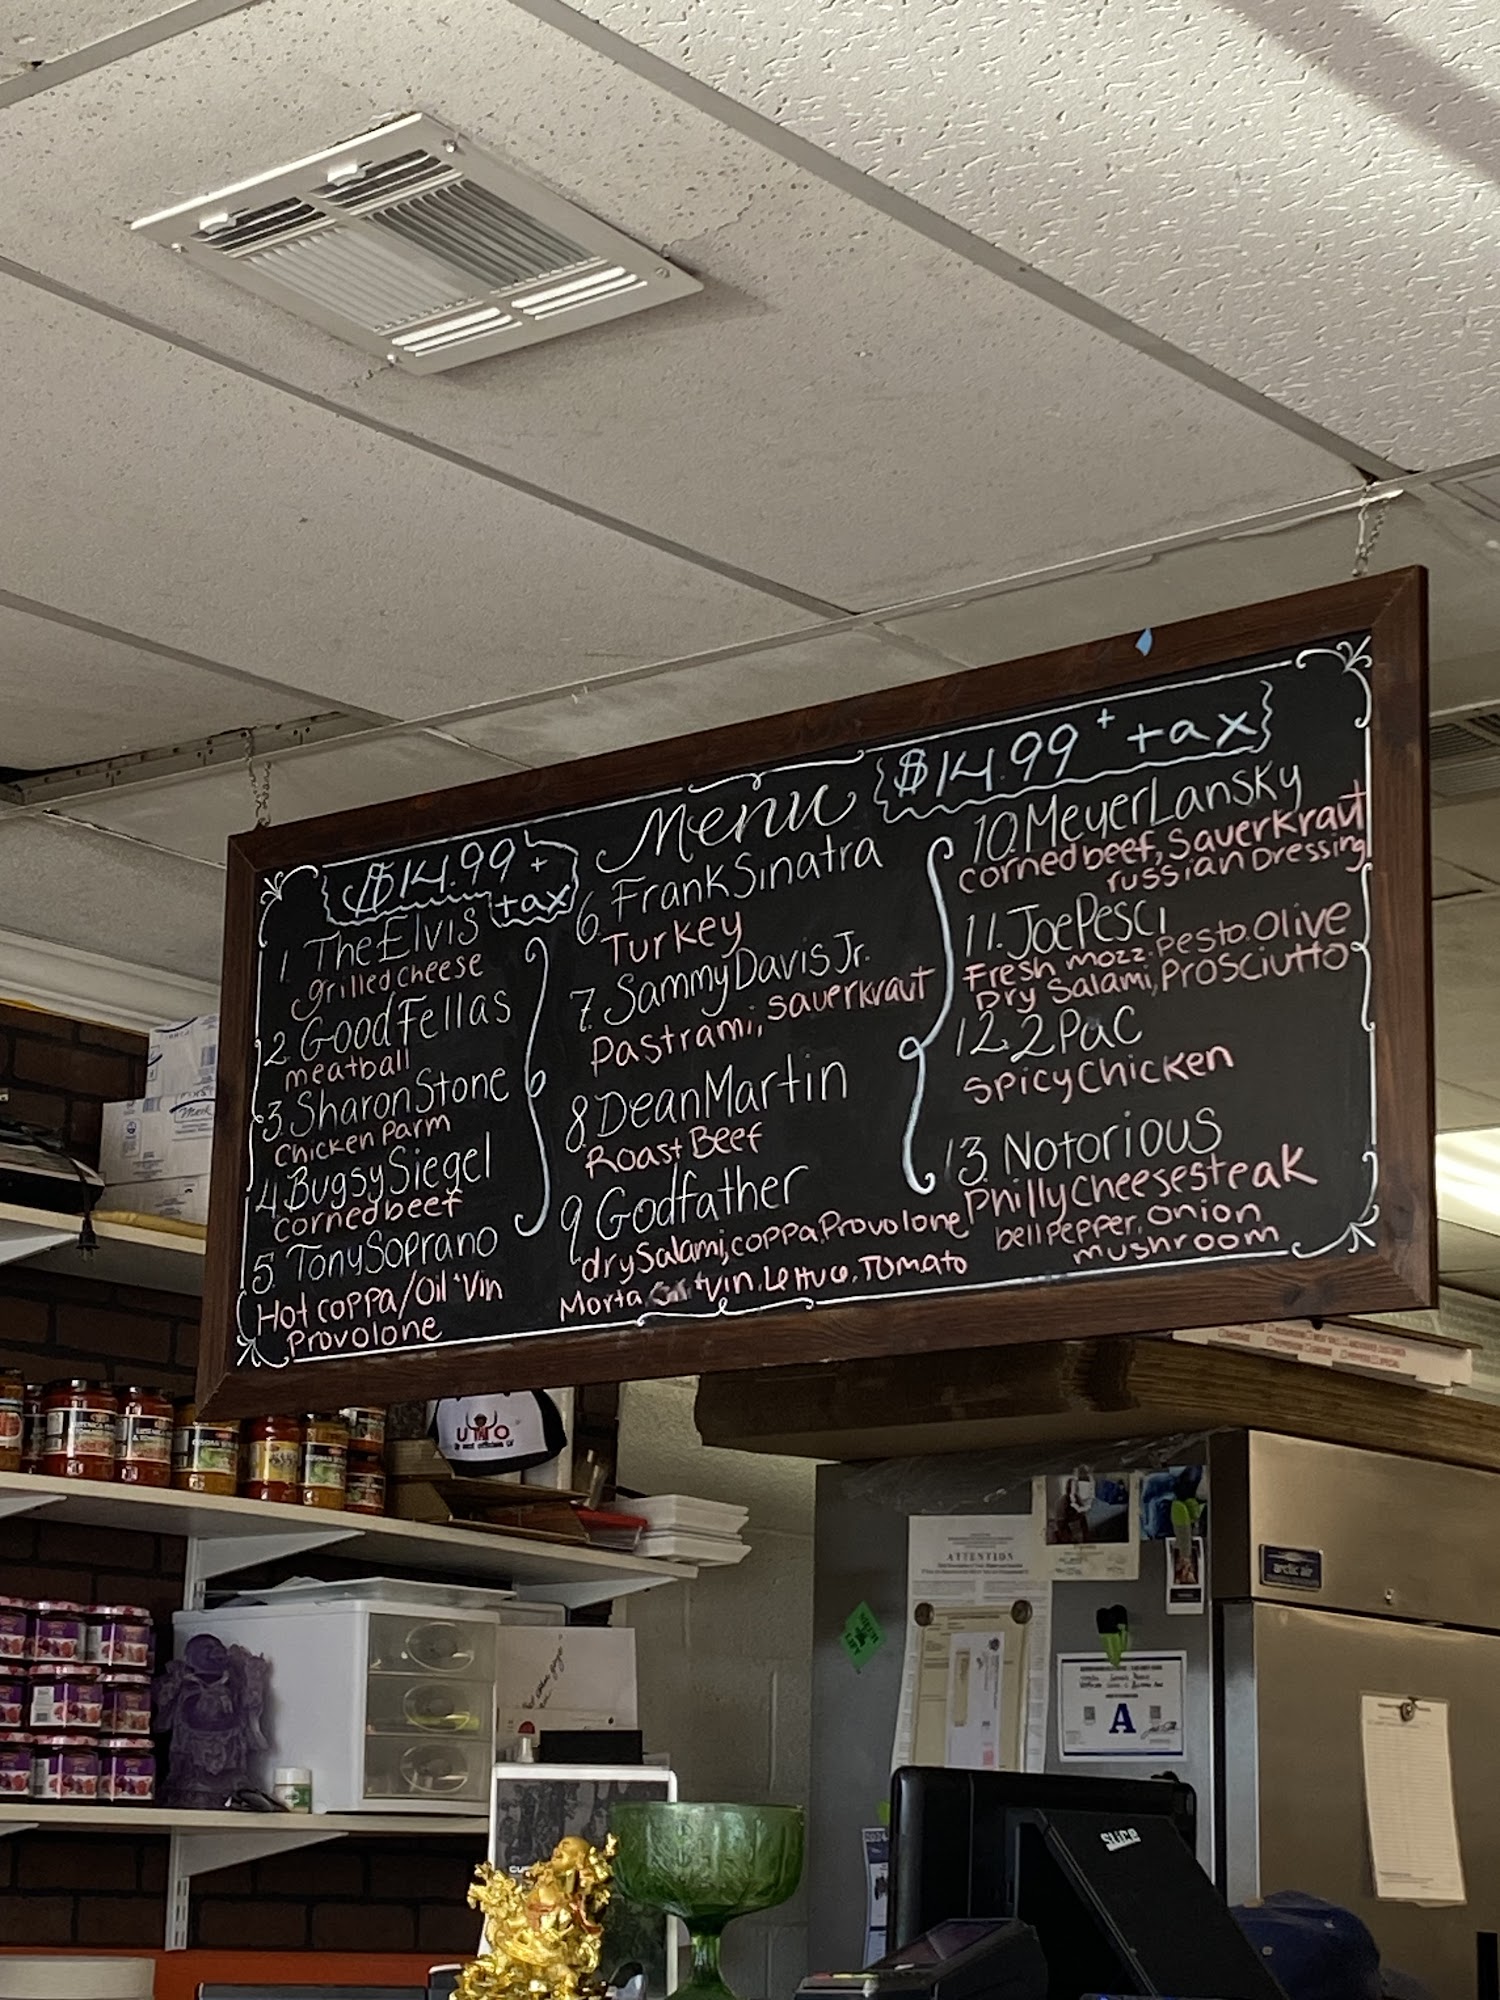 Menu
$14.99 + tax
$14.99 + tax
1. The Elvis
grilled cheese
2. Good Fellas
meatball
3. Sharon Stone
Chicken Parm
4. Bugsy Siegel
corned beef
5. Tony Soprano
Hot coppa/Oil + Vin
Provolone
6. Frank Sinatra
Turkey
7. Sammy Davis Jr.
Pastrami, sauerkraut
8. Dean Martin
Roast Beef
9 Godfather
dry Salami, coppa, Provolone
Morta, Vin, Lettuce, Tomato
10. Meyer Lansky
corned beef, Sauerkraut
russian Dressing
11. Joe Pesci
Fresh mozz. Pesto. Olive
Dry Salami, Prosciutto
12. 2Pac
Spicy Chicken
13. Notorious
Philly Cheesesteak
bell Pepper, Onion
mushroom
ATTENTION
A
arctic air
SLICE